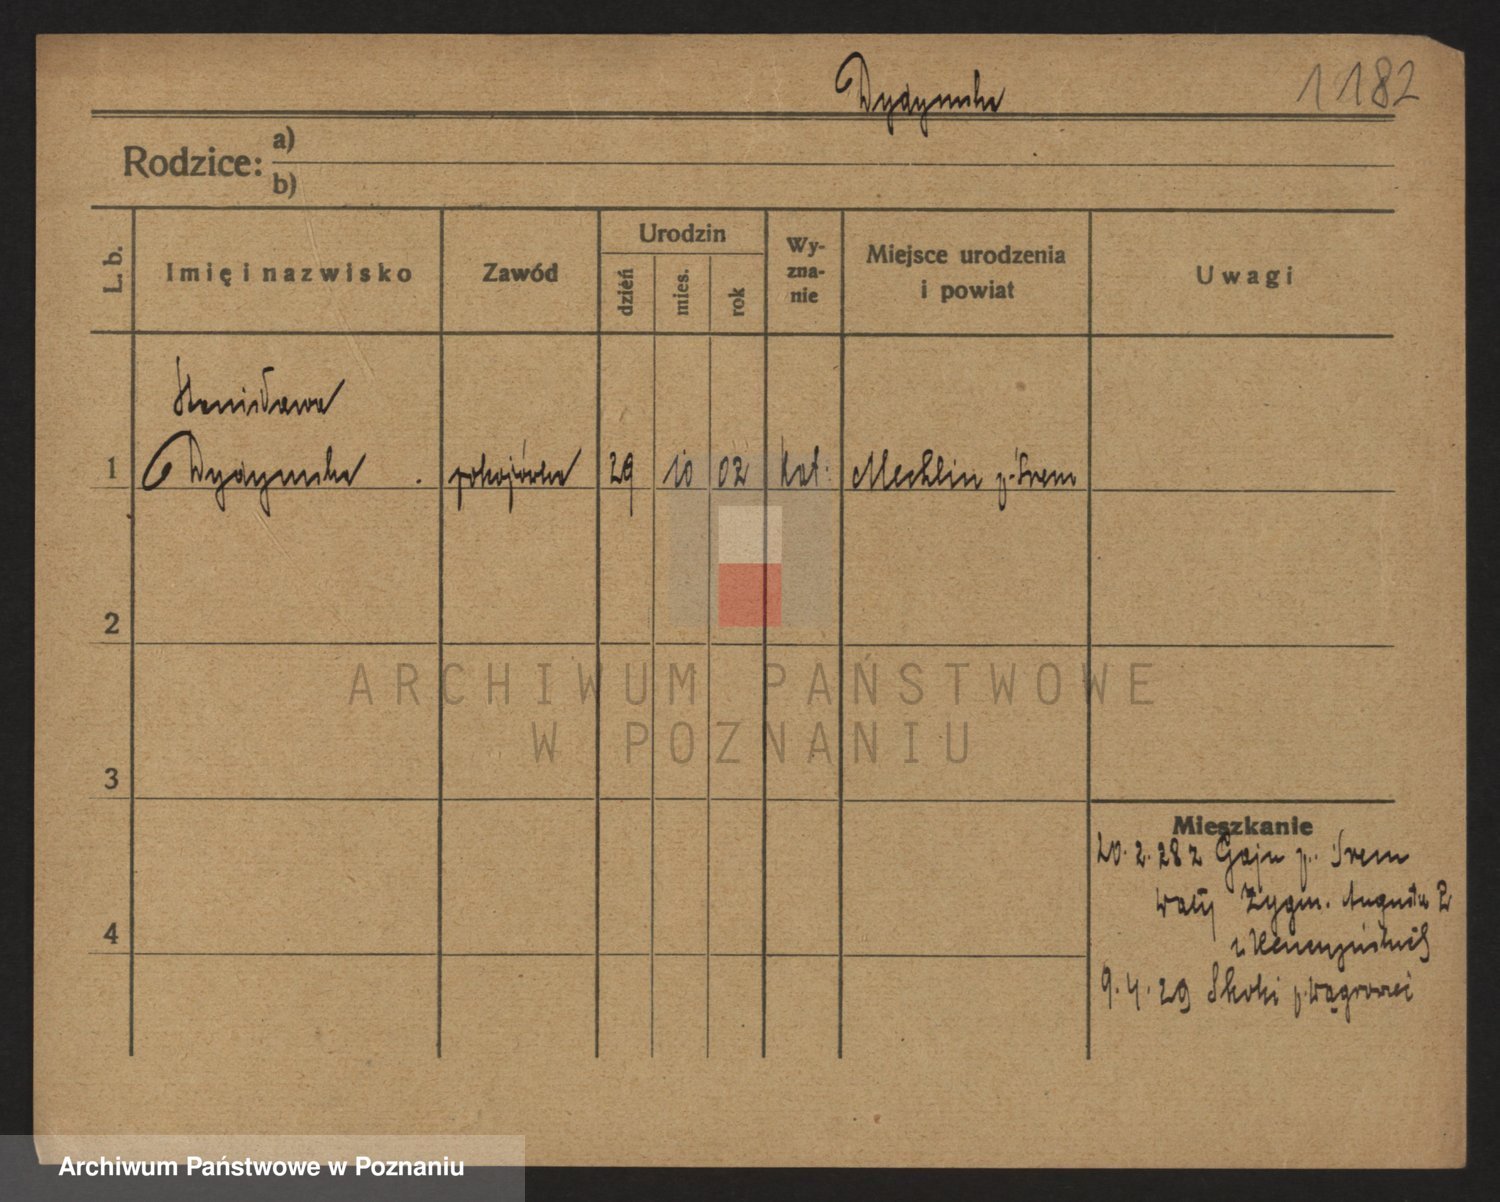 Dydymska
1182
Rodzice: a)
b)
L. b.
Imię i nazwisko
Zawód
Urodzin
dzień
mies.
rok
Wy-
zna-
nie
Miejsce urodzenia
i powiat
Uwagi
Stanisława
1 Dydymska pokojówka 29 10 02 kat. Mechlin p. Śrem
2
3
4
Mieszkanie
20.2.28 z Gaju p. Śrem
Wały Zygm. Augusta 2
u
9.4.29 Skoki p. Wągrowiec
ARCHIWUM PAŃSTWOWE
W POZNANIU
Archiwum Państwowe w Poznaniu